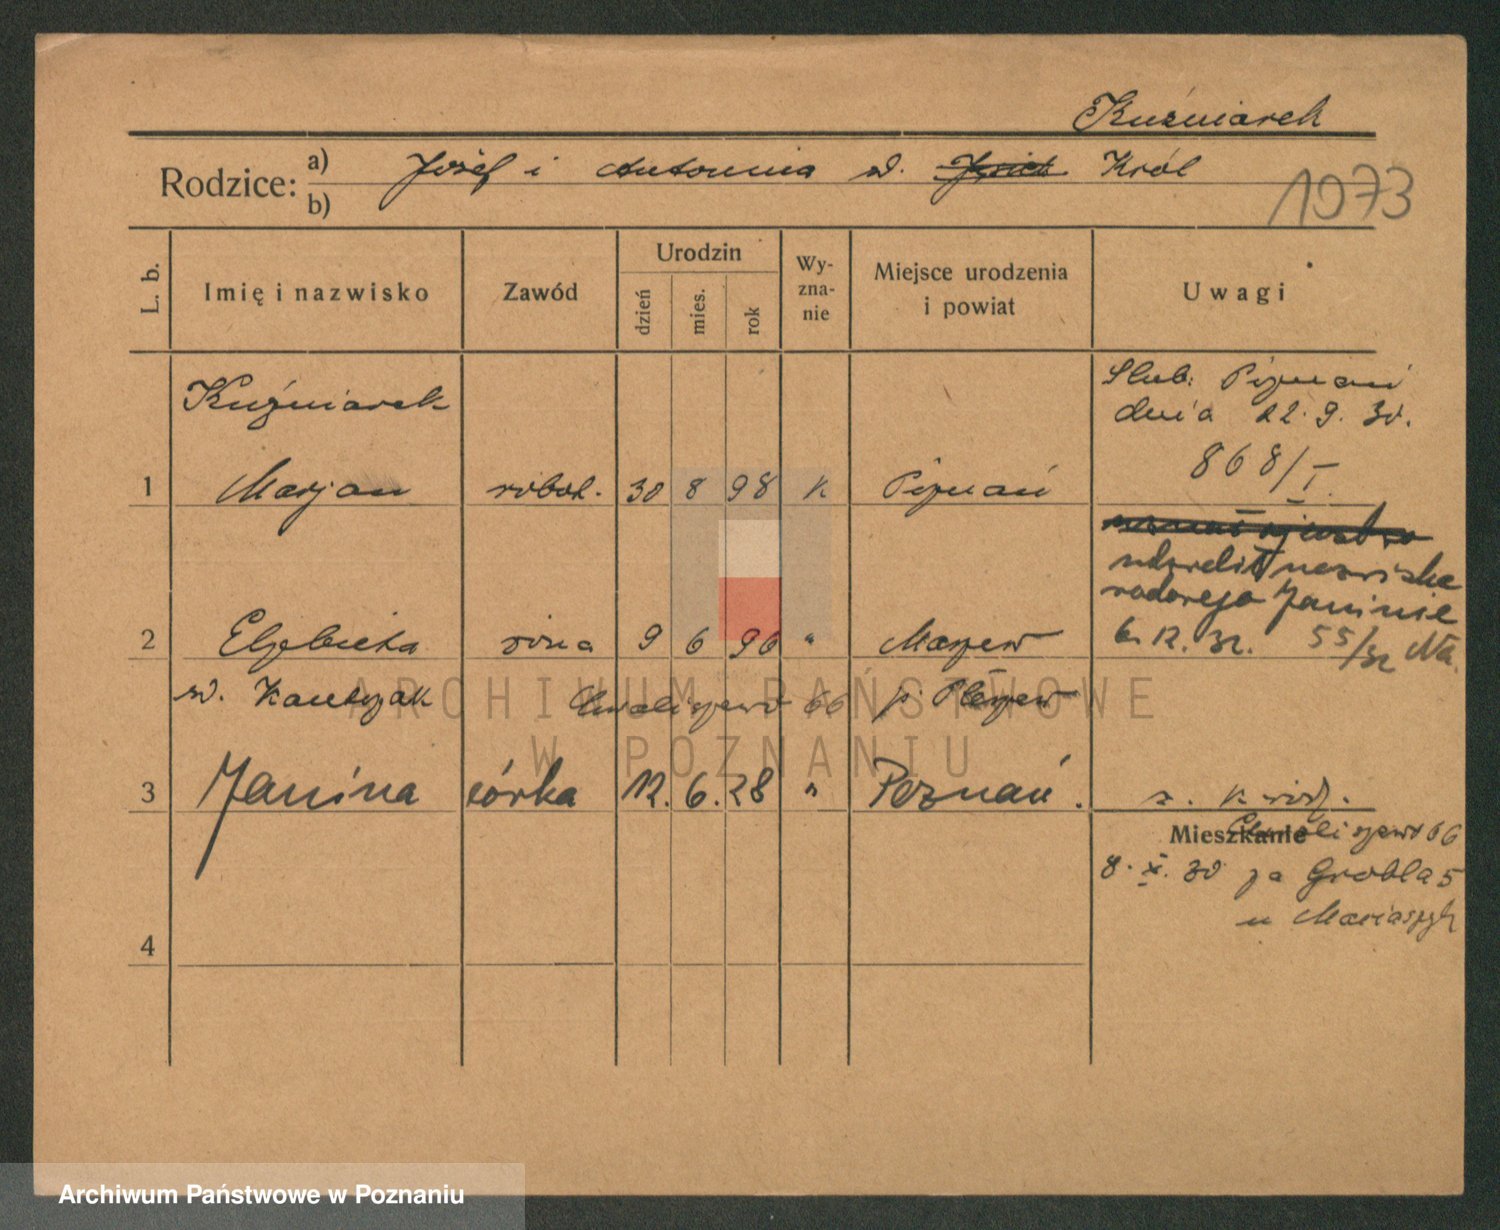 Kuźniarek
Rodzice: a) Józef i Antonina d. Król
b)
1973
L. b. Imię i nazwisko Zawód Urodzin dzień mies. rok Wy-zna-nie Miejsce urodzenia i powiat Uwagi
Kuźniarek
Ślub: Poznań
dnia 22. 9. 30.
868/I.
1 Marjan robot. 30 8 98 k Poznań
udzielił nazwiska
rodowego Janinie
6. 12. 32. 55/32
2 Elżbieta żona 9 6 96 " Marszew
d. Kantczak Chwaliszewo 66 p. Pleszew
3 Janina córka 12. 6. 28 " Poznań.
Mieszkanie
Chwaliszewo 66
8. X. 30 za Grobla 5
u
4
ARCHIWUM PAŃSTWOWE
W POZNANIU
Archiwum Państwowe w Poznaniu